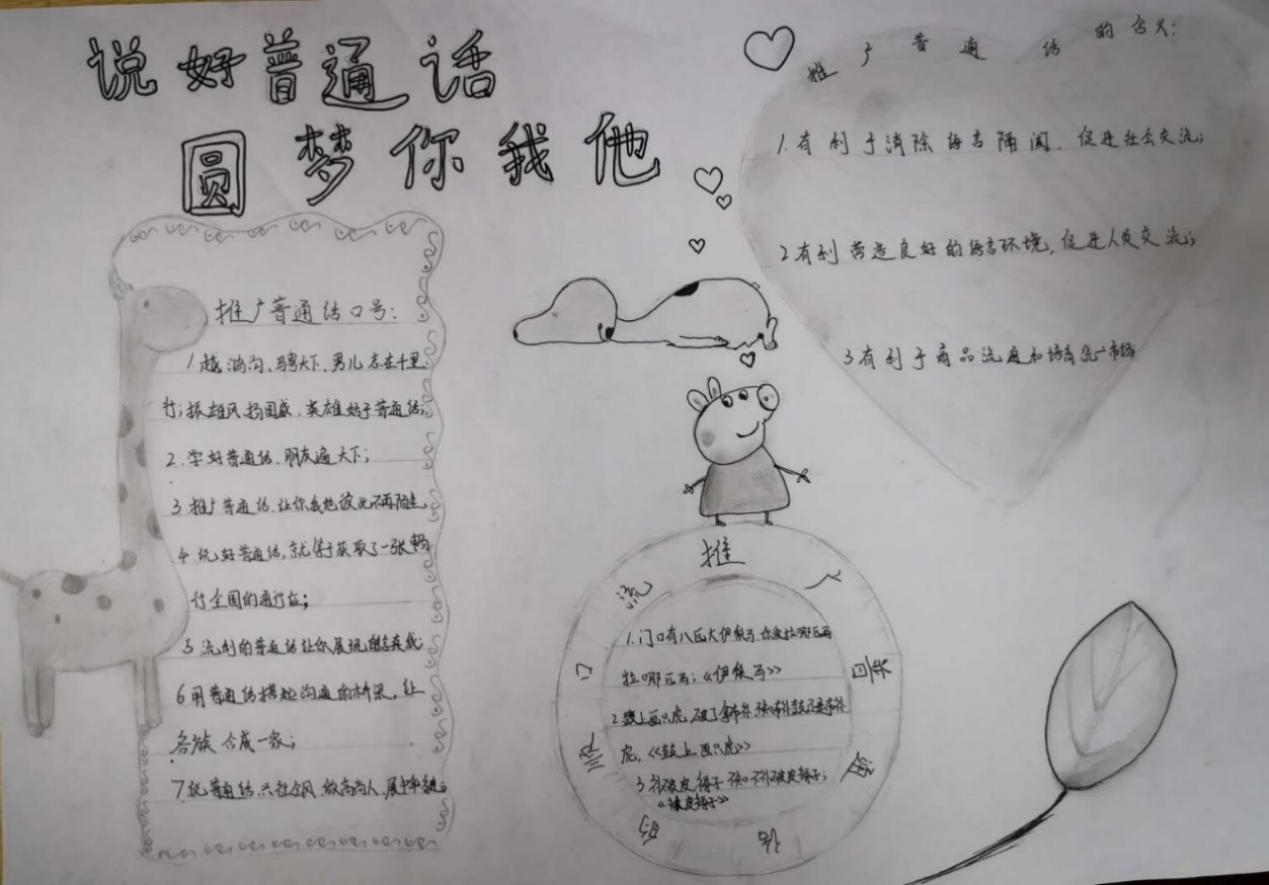 说好普通话
圆梦你我他
推广普通话口号:
1越鸿沟、骋天下、男儿志在千里
行;振雄风扬国威、英雄始于普通话;
2.学好普通话、朋友遍天下;
3推广普通话、让你我他彼此不再陌生。
4.说好普通话,就等于获取了一张畅
行全国的通行证;
5流利的普通话让你展现
6用普通话搭起沟通的桥梁,让
各族合成一家;
7说普通话、做高尚人、展中华魅;
推广普通话的含义:
1.有利于消除语言隔阂、促进社会交流;
2有利营造良好的语言环境,促进人员交流;
3有利于商品流通和培育统一市场
推广普通话的顺口流
1.门口有八匹大伊犁马,你爱拉哪匹马
拉哪匹马;《伊犁马》
2鼓上画只虎,破了拿布补,
虎,《鼓上画只虎》
3补破皮褥子不补破皮褥子;
《补皮褥子》